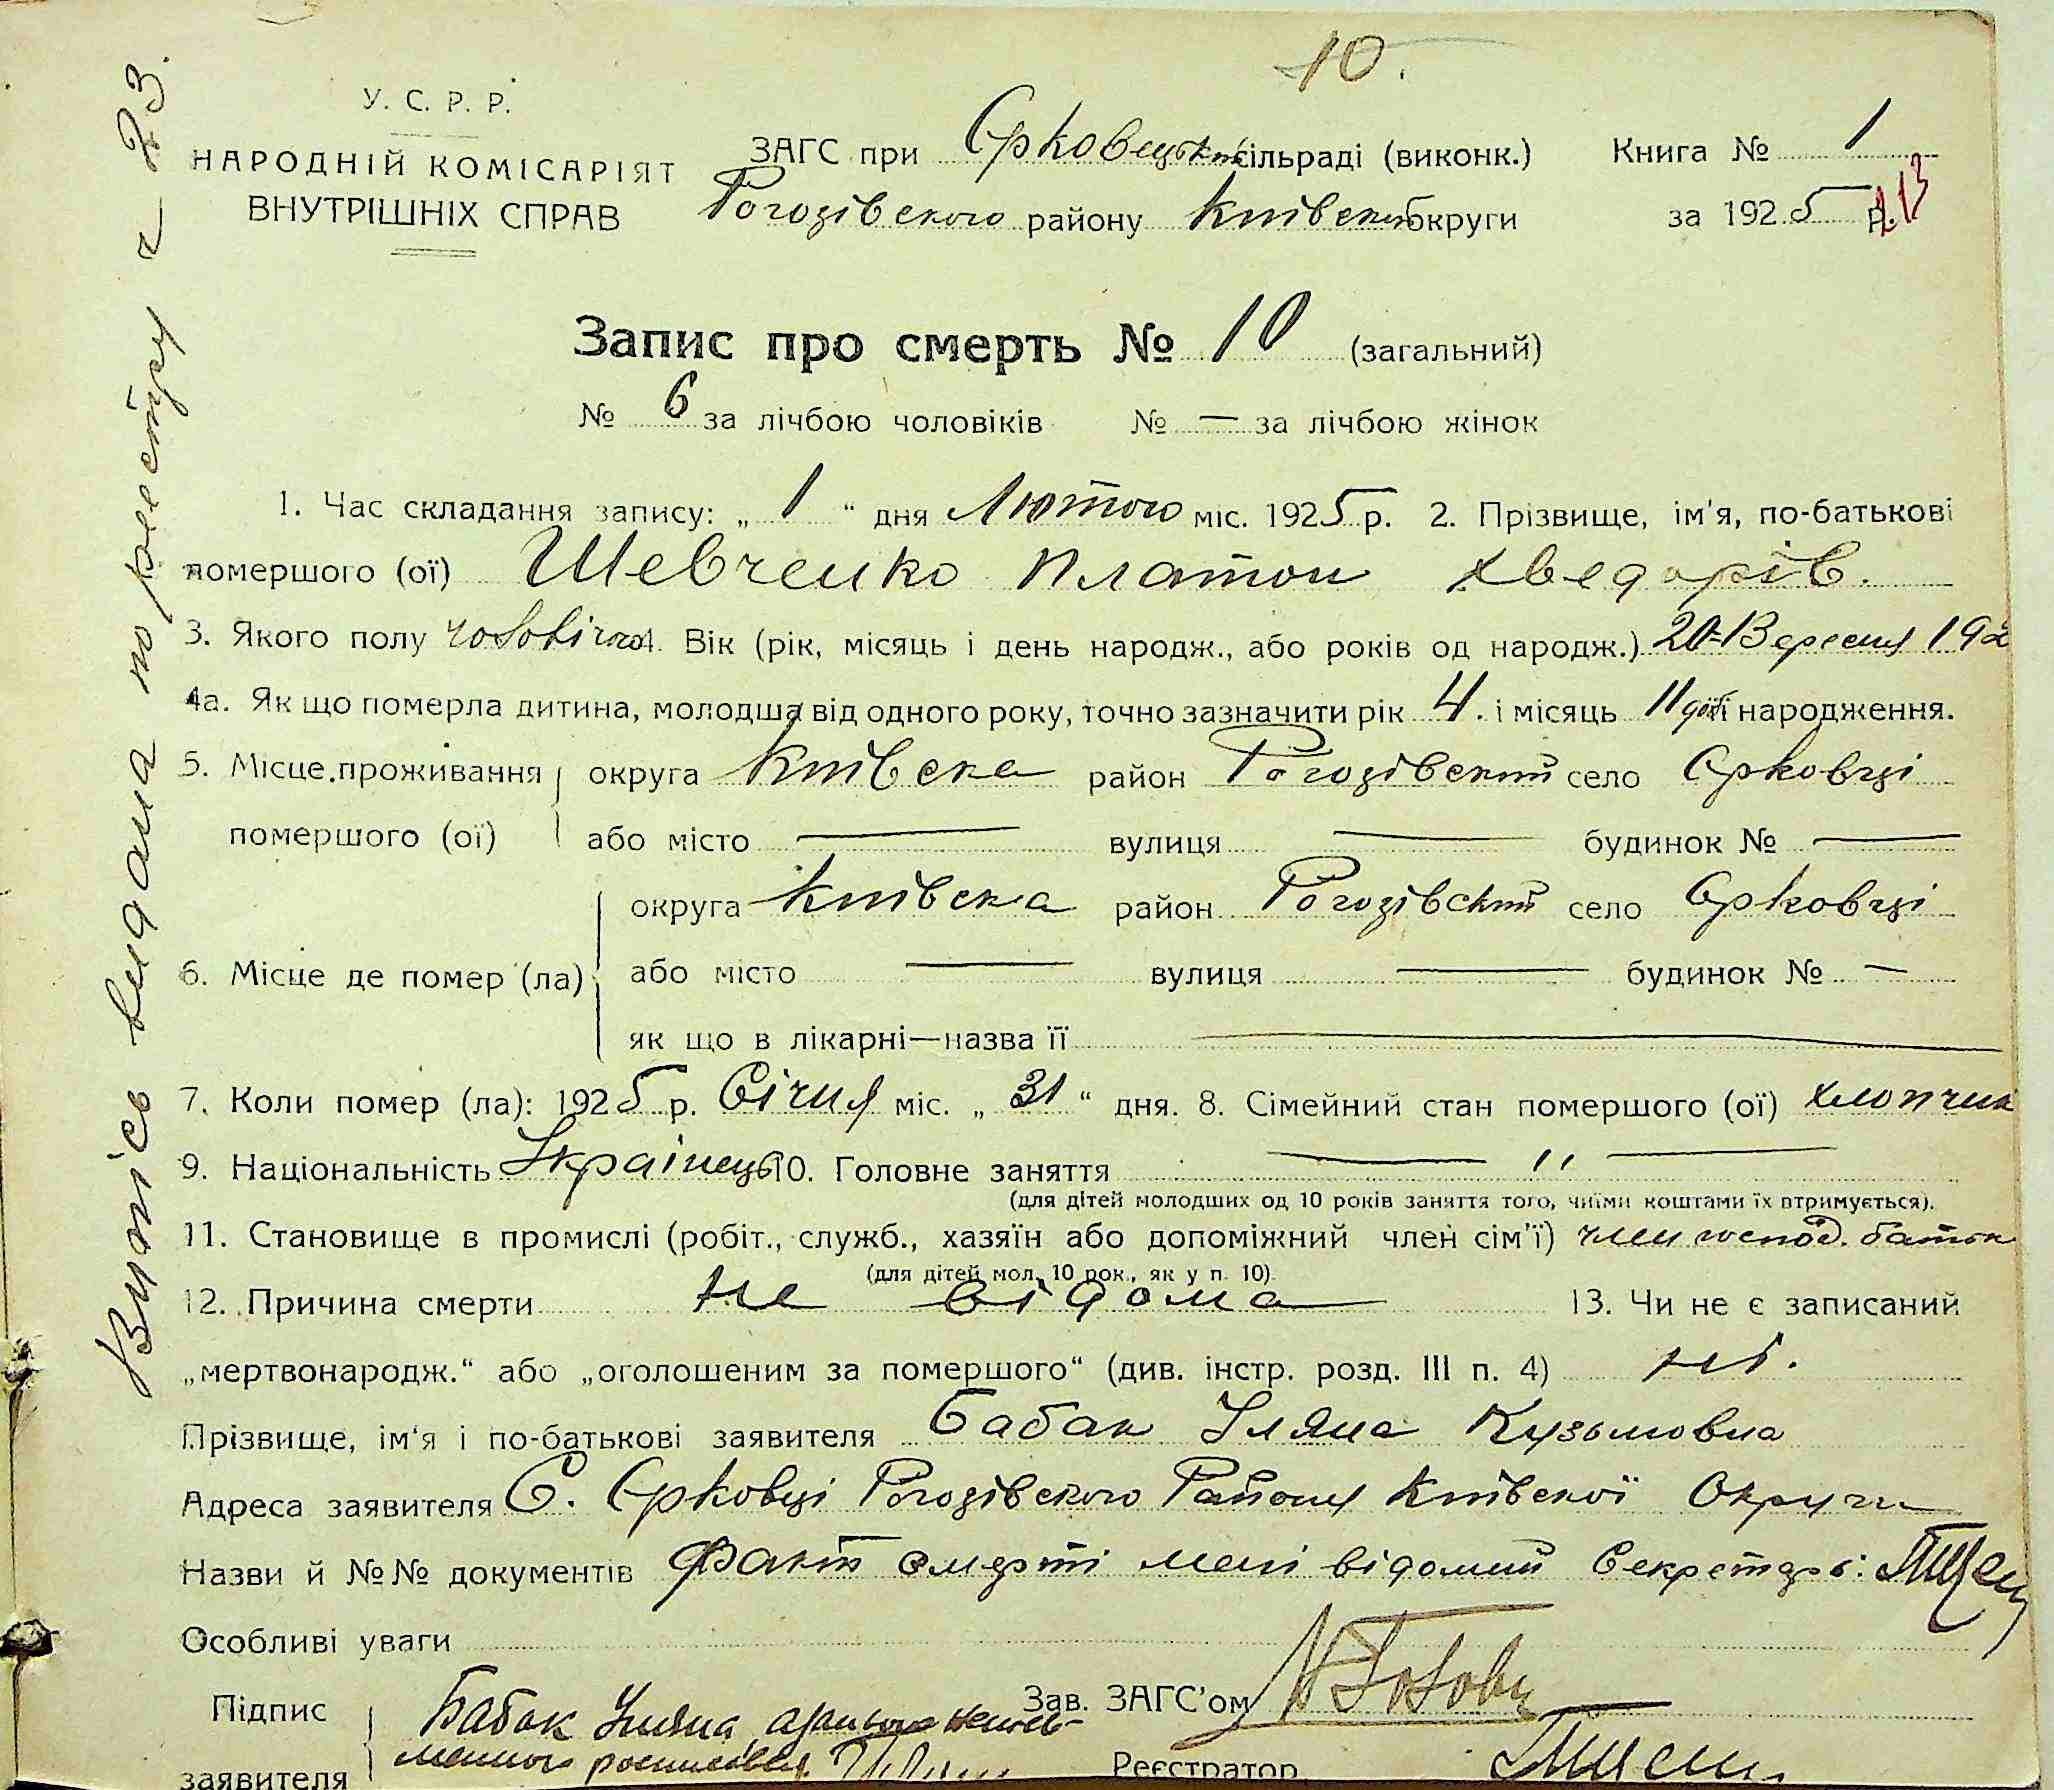 10.
У. С. Р. Р.
НАРОДНІЙ КОМІСАРІЯТ
ВНУТРІШНІХ СПРАВ
ЗАГС при Єрковецькій сільраді (виконк.) Книга № 1
Рогозівского району Київської округи за 1925 р. 213
Запис про смерть № 10 (загальний)
№ 6 за лічбою чоловіків № — за лічбою жінок
1. Час складання запису: „ 1 “ дня Лютого міс. 1925 р. 2. Прізвище, ім'я, по-батькові
помершого (ої) Шевченко Платон Хведорів.
3. Якого полу чоловічої 4. Вік (рік, місяць і день народж., або років од народж.) 20 Вересня 192
4а. Як що померла дитина, молодша від одного року, точно зазначити рік 4. і місяць 11 діб її народження.
5. Місце проживання округа Київска район Рогозівский село Єрковці
помершого (ої) або місто — вулиця — будинок № —
округа Київска район Рогозівский село Єрковці
6. Місце де помер (ла) або місто — вулиця — будинок № —
як що в лікарні—назва її —
7. Коли помер (ла): 1925 р. Січня міс. „ 31 “ дня. 8. Сімейний стан помершого (ої) хлопчик
9. Національність Українець 10. Головне заняття — „ —
(для дітей молодших од 10 років заняття того, чиїми коштами їх втримується).
11. Становище в промислі (робіт., служб., хазяїн або допоміжний член сім'ї) член господ. батька
(для дітей мол. 10 рок., як у п. 10).
12. Причина смерти не відома 13. Чи не є записаний
„мертвонародж.“ або „оголошеним за помершого“ (див. інстр. розд. III п. 4) ні.
Прізвище, ім'я і по-батькові заявителя Бабак Уляна Кузьмовна
Адреса заявителя С. Єрковці Рогозівского Району Київскої Округи
Назви й №№ документів Факт смерті мені відомий Секретарь:
Особливі уваги
Підпис
заявителя
Бабак Уляна, а за неї
росписався
Зав. ЗАГС'ом
Реєстратор
Випісь видана по реєстру ч 23.